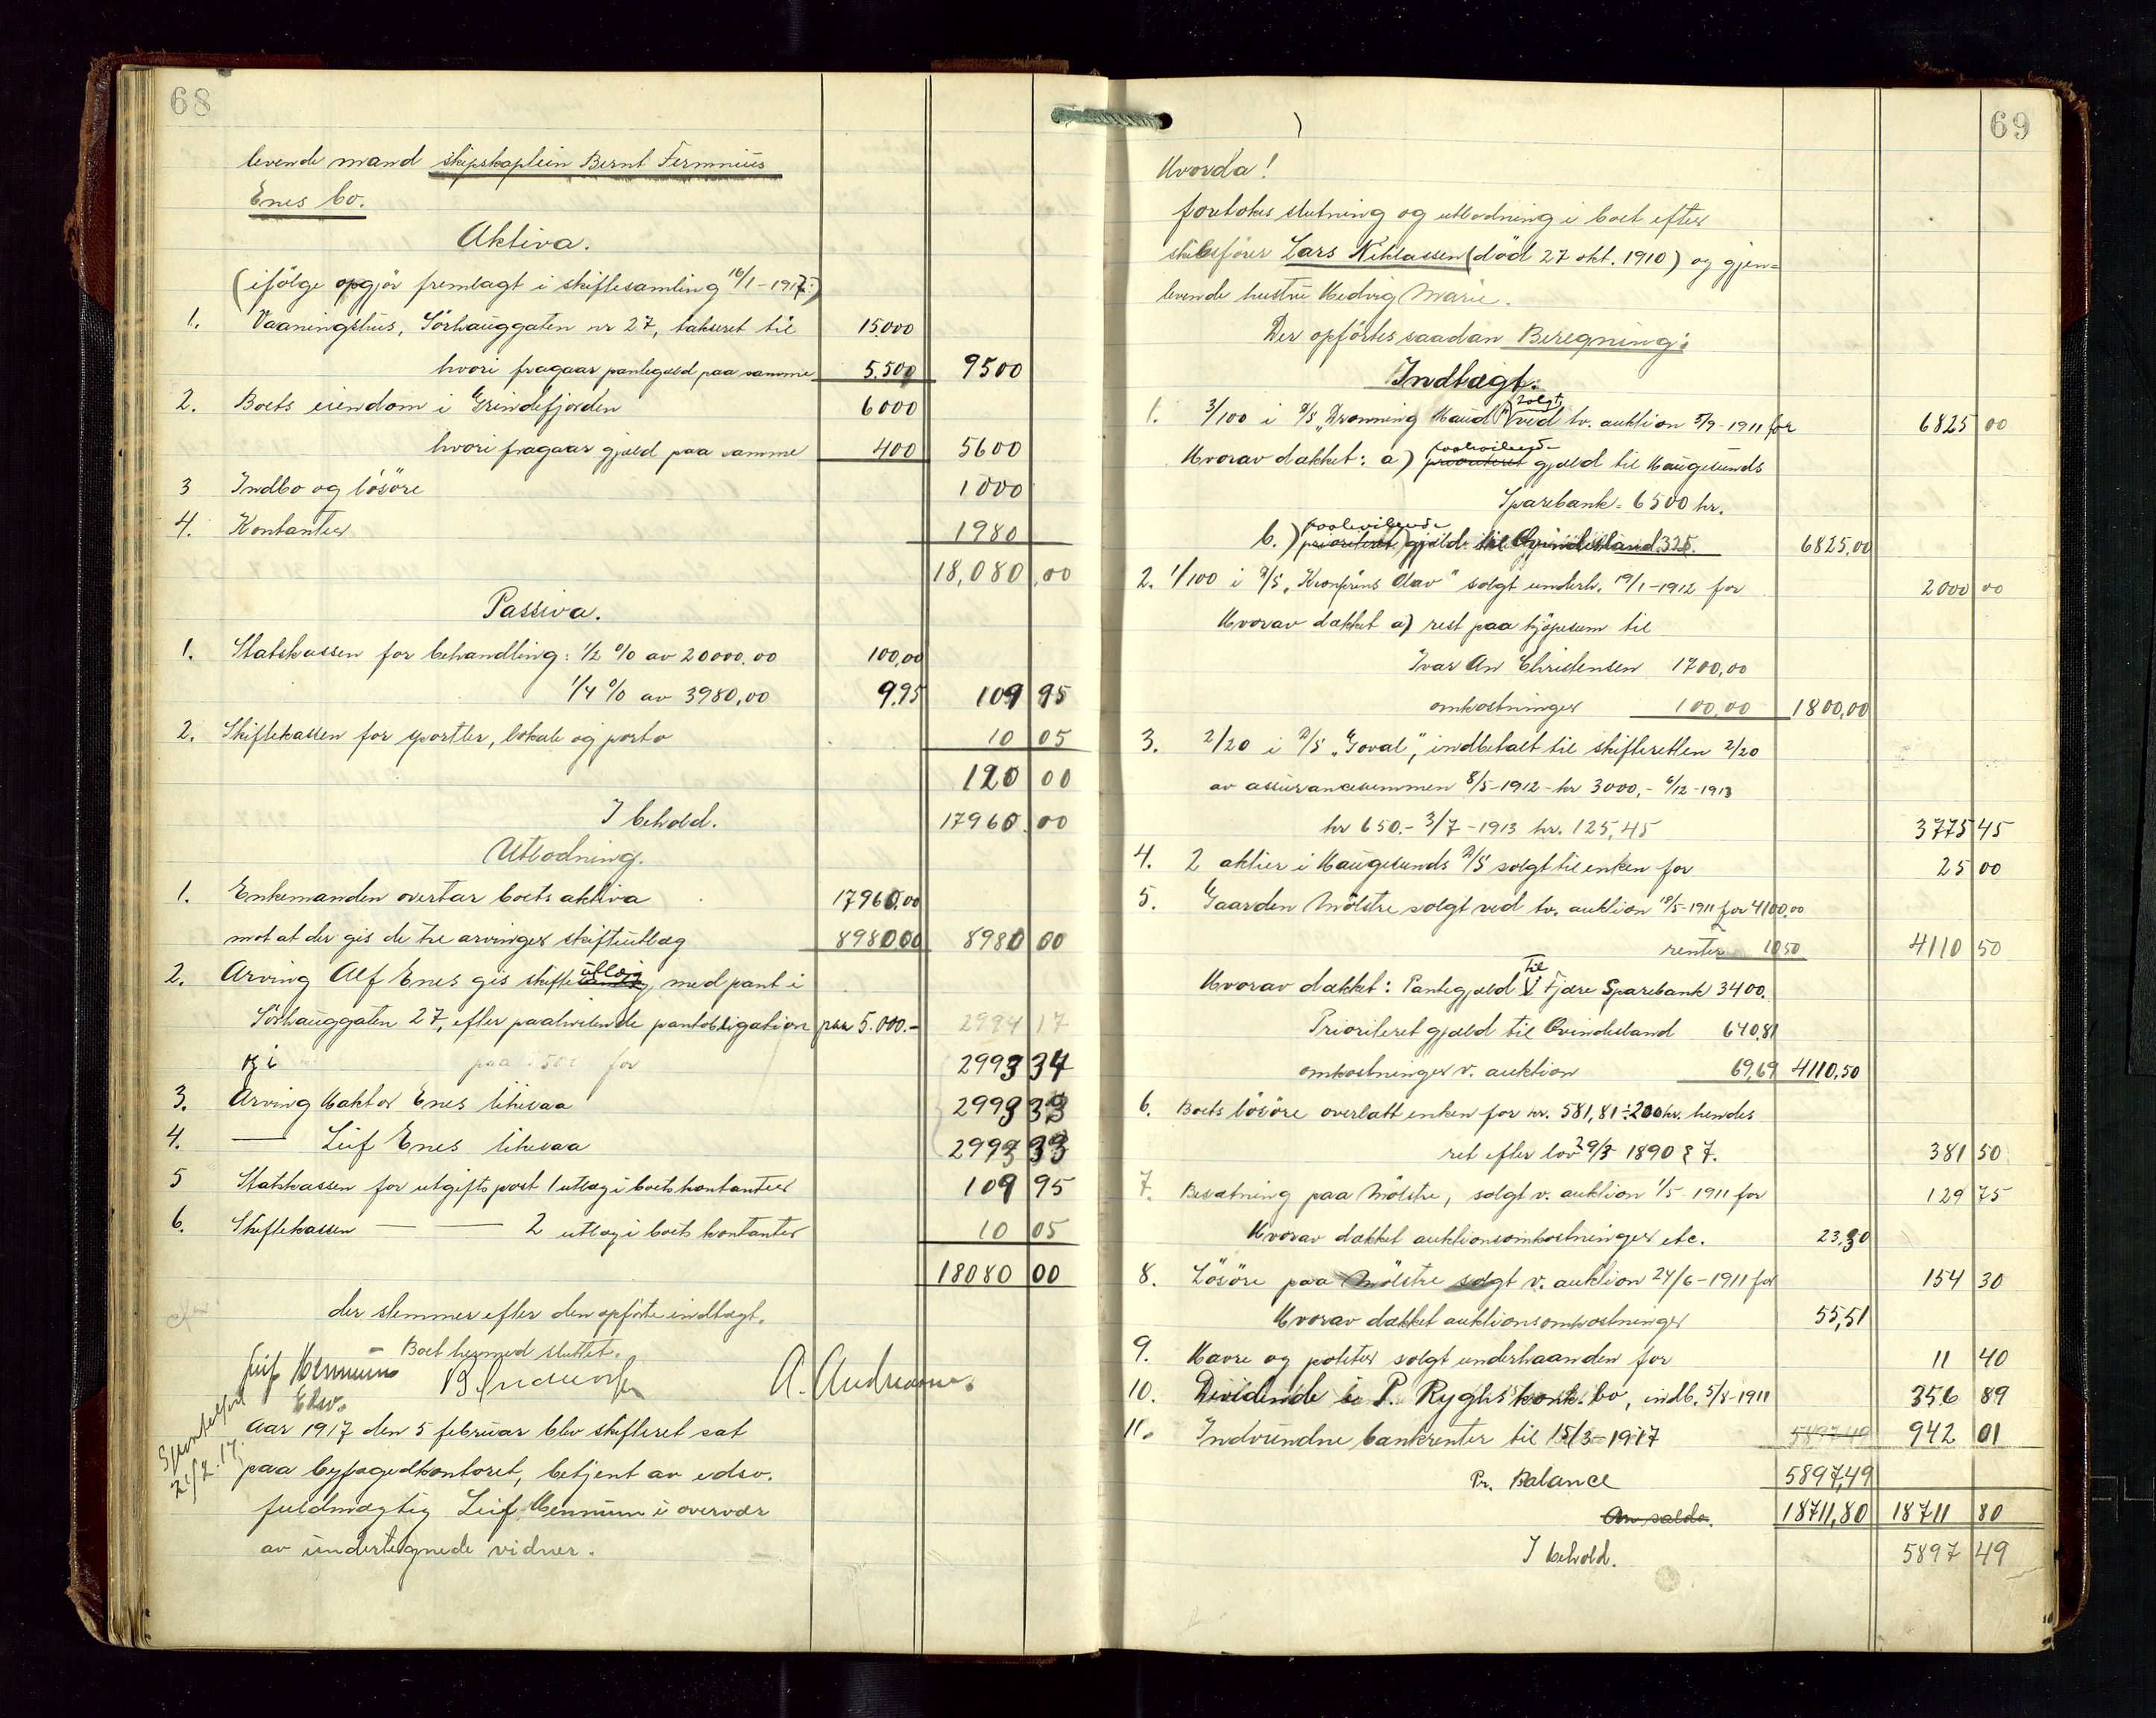 68
levende mand skipskaptein Bernt Ferminius
Enes bo.
Aktiva.
(ifölge opgjör fremlagt i skiftesamling 16/1-1917:)
1. Vaaningshus, Sörhauggaten nr 27, takseret til 15.000
hvori fragaar pantegjæld paa samme 5.500 9500
2. Boets eiendom i Grindefjorden 6000
hvori fragaar gjæld paa samme 400 5600
3 Indbo og lösöre 1000
4. Kontanter 1980
18,080,00
Passiva.
1. Statskassen for behandling: 1/2 % av 20000.00 100,00
1/4 % av 3980,00 9.95 109 95
2. Skiftekassen for sportler, lokale og porto 10 05
120 00
I behold. 17960.00
Utlodning.
1. Enkemanden overtar boets aktiva 17960.00
mot at der gis de tre arvinger skifteutlæg 8980 00 8980 00
2. Arving Alf Enes gis skifteutlæg, med pant i
Sörhauggaten 27, efter paahvilende pantobligation paa 5.000.- 2994 17
paa for 2993 34
3. Arving Haktor Enes likesaa 2993 33
4. — Leif Enes likesaa 2993 33
5 Statskassen for utgiftspost 1 utlæg i boets kontanter 109 95
6. Skiftekassen — — 2 utlæg i boets kontanter 10 05
18080 00
der stemmer efter den opförte indtægt.
- Boet hermed sluttet.
Leif Mennum A. Andreassen.
Edsv.
Aar 1917 den 5 februar blev skifteret sat
paa byfogedkontoret, betjent av edsv.
fuldmægtig Leif Mennum i overvær
av undertegnede vidner.
69
Hvorda!
foretokes slutning og utlodning i boet efter
skibsförer Lars Niklassen (död 27 okt. 1910) og gjen=
levende hustru Hedvig Marie.
Der opförtes saadan Beregning:
Indtægt.
1. 3/100 i D/S "Dronning Maud" solgt ved tv. auktion 5/9-1911 for 6825 00
Hvorav dækket: a) paahvilende prioriteret gjæld til Haugesunds
Sparebank = 6500 kr.
b.) paahvilende prioriteret gjæld til Qvindesland 325. 6825,00
2. 1/100 i D/S "Kronprins Olav" solgt underh. 19/1-1912 for 2000 00
Hvorav dækket a) rest paa kjöpesum til
Ivar An Christensen 1700,00
omkostninger 100,00 1800,00
3. 2/20 i D/S "Goval", indbetalt til skifteretten 2/20
av assurancesummen 8/5-1912 - kr 3000,- 6/12-1913
kr 650.- 3/7-1913 kr. 125,45 3775 45
4. 2 aktier i Haugesunds D/S solgt til enken for 25 00
5. Gaarden Mölstre solgt ved tv. auktion 18/5-1911 for 4100,00
renter 10 50 4110 50
Hvorav dækket: Pantegjæld til Fjære Sparebank 3400.
Prioriteret gjæld til Qvindesland 640,81
omkostninger v. auktion 69,69 4110,50
6. Boets lösöre overlatt enken for kr. 581,81 ÷ 200 kr. hendes
ret efter lov 29/3 1890 § 7. 381 50
7. Besætning paa Mölstre, solgt v. auktion 1/5-1911 for 129 75
Hvorav dækket auktionsomkostninger etc. 23,30
8. Lösöre paa Mölstre solgt v. auktion 24/6-1911 for 154 30
Hvorav dækket auktionsomkostninger 55,51
9. Havre og poteter solgt underhaanden for 11 40
10. Dividende i P. Ryghs konk. bo, indb. 5/8-1911 356 89
11. Indvundne bankrenter til 15/3-1917 5897.49 942 01
Pr. Balance 5897,49
An saldo. 18711,80 18711 80
I behold. 5897 49